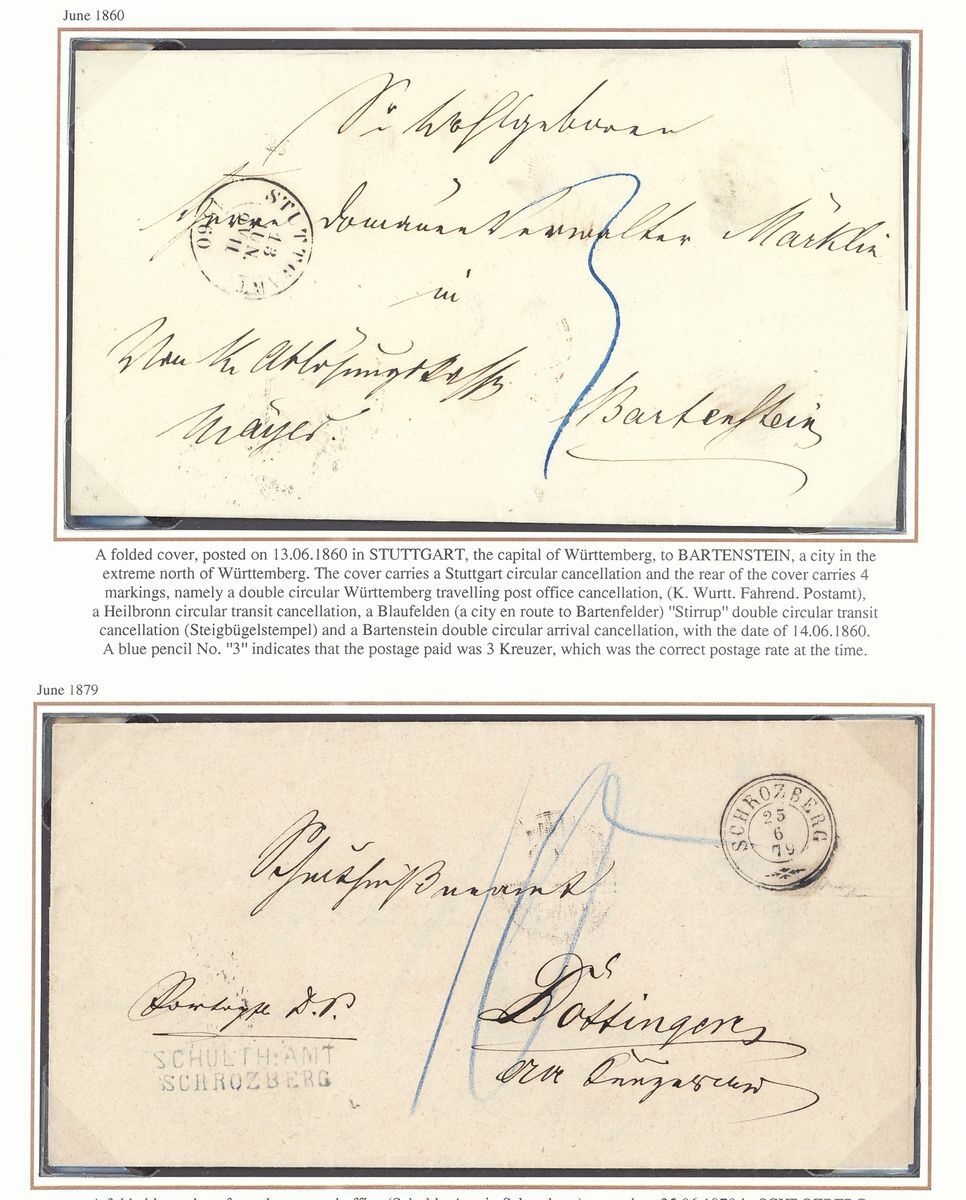 June 1860
Sr Wohlgeboren
Herrn Domänen Verwalter Märklin
in
Bartenstein
Von der Ablösungskasse
Mayer.
STUTTGART
13
JUN
60
3
A folded cover, posted on 13.06.1860 in STUTTGART, the capital of Württemberg, to BARTENSTEIN, a city in the
extreme north of Württemberg. The cover carries a Stuttgart circular cancellation and the rear of the cover carries 4
markings, namely a double circular Württemberg travelling post office cancellation, (K. Wurtt. Fahrend. Postamt),
a Heilbronn circular transit cancellation, a Blaufelden (a city en route to Bartenfelder) "Stirrup" double circular transit
cancellation (Steigbügelstempel) and a Bartenstein double circular arrival cancellation, with the date of 14.06.1860.
A blue pencil No. "3" indicates that the postage paid was 3 Kreuzer, which was the correct postage rate at the time.
June 1879
SCHROZBERG
25
6
79
Schultheißenamt
10
Döttingen
Portopfl. D.S.
SCHULTH:AMT
SCHROZBERG